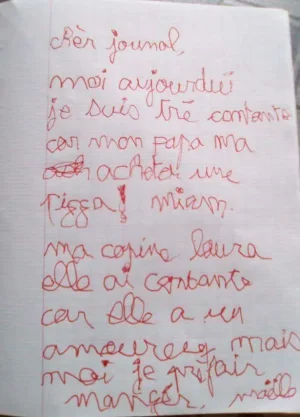 chèr journal,
moi aujourduï
je suis tré contante
car mon papa ma
acheter une
pizza! miam.
ma copine laura
elle ai contante
car elle a un
amoureu mais
moi je préfair
manger,